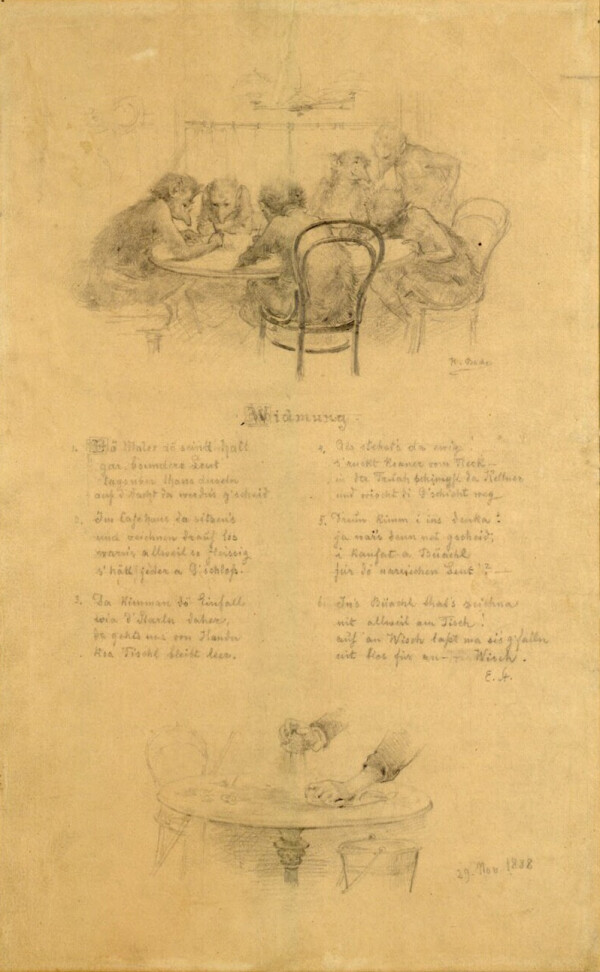 Widmung.
1. Dö Maler is seind halt
gar b'sundere Leut
auf d'Nacht da werdn's g'scheid
2. Im Cafehaus da sitzen's
und zeichnen drauf los
warn's alleweil so fleissig
s'hätt jeder a G'schloß.
3. Da kimman dö Einfäll
wia d'Starln daher,
da gehts nur von Handn
Koa Tischl bleibt leer.
4. Dös steht da
s'ruckt koaner vom Fleck –
in der Fruah schimpft da Kellner
und wischt di G'schicht weg
5. Drum kimm i ins denka:
ja wär's denn net gscheid,
i kaufat a Büachl
für dö narrischen Leut'? –
6. Ins Büachl that's zeichna
nit allweil am Tisch!
auf an Wisch laßt ma sie g'fallen
nit blos für an – Wisch.
E. H.
29. Nov. 1888